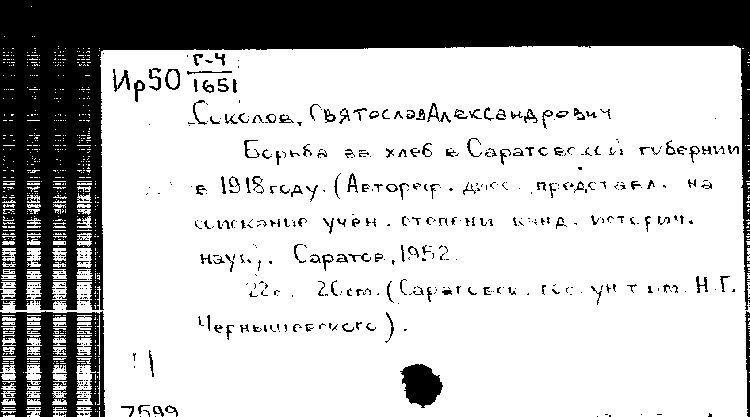 Ир50 Г-4
1651
Соколов, Святослав Александрович
Борьба за хлеб в Саратовской губернии
в 1918 году. (Автореф. дисс. представл. на
соискание учен. степени канд. историч.
наук). Саратов, 1952.
22с. 20см. (Саратовск. гос. ун-т им. Н.Г.
Чернышевского).
7599